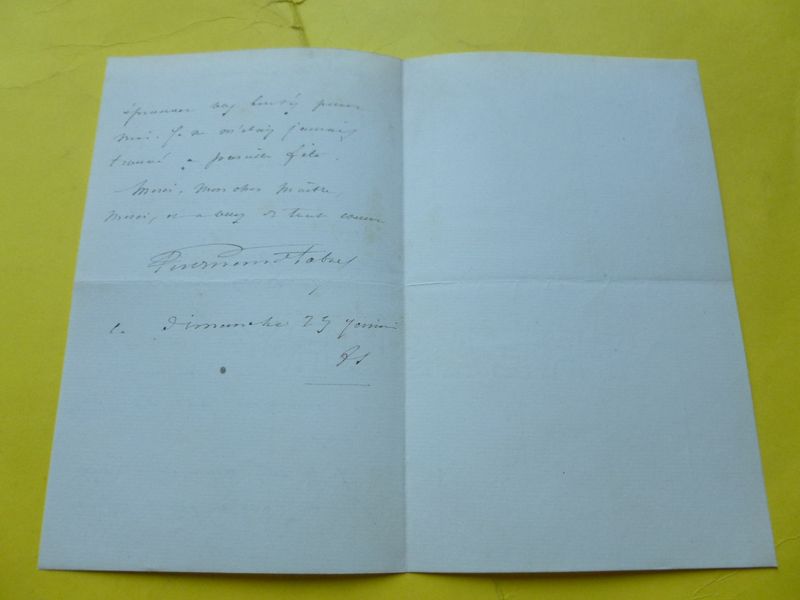 éprouver vos bontés pour
moi. Je ne m'étais jamais
trouvé à pareille fête.
Merci, mon cher Maître,
Merci, et à vous de tout coeur
Ferdinand Fabre
Dimanche 25 janvier